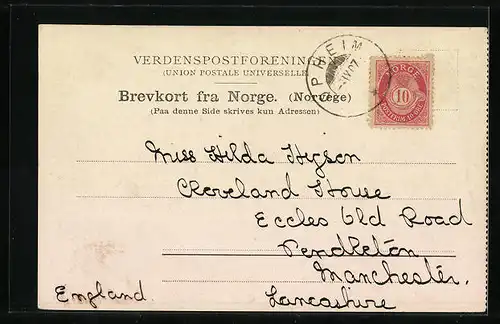 VERDENSPOSTFORENINGEN
(UNION POSTALE UNIVERSELLE)
Brevkort fra Norge. (Norvège)
(Paa denne Side skrives kun Adressen)
NORGE
10
Miss Hilda Hyson
Cleveland House
Eccles Old Road
Pendleton
Manchester.
England.
Lancashire